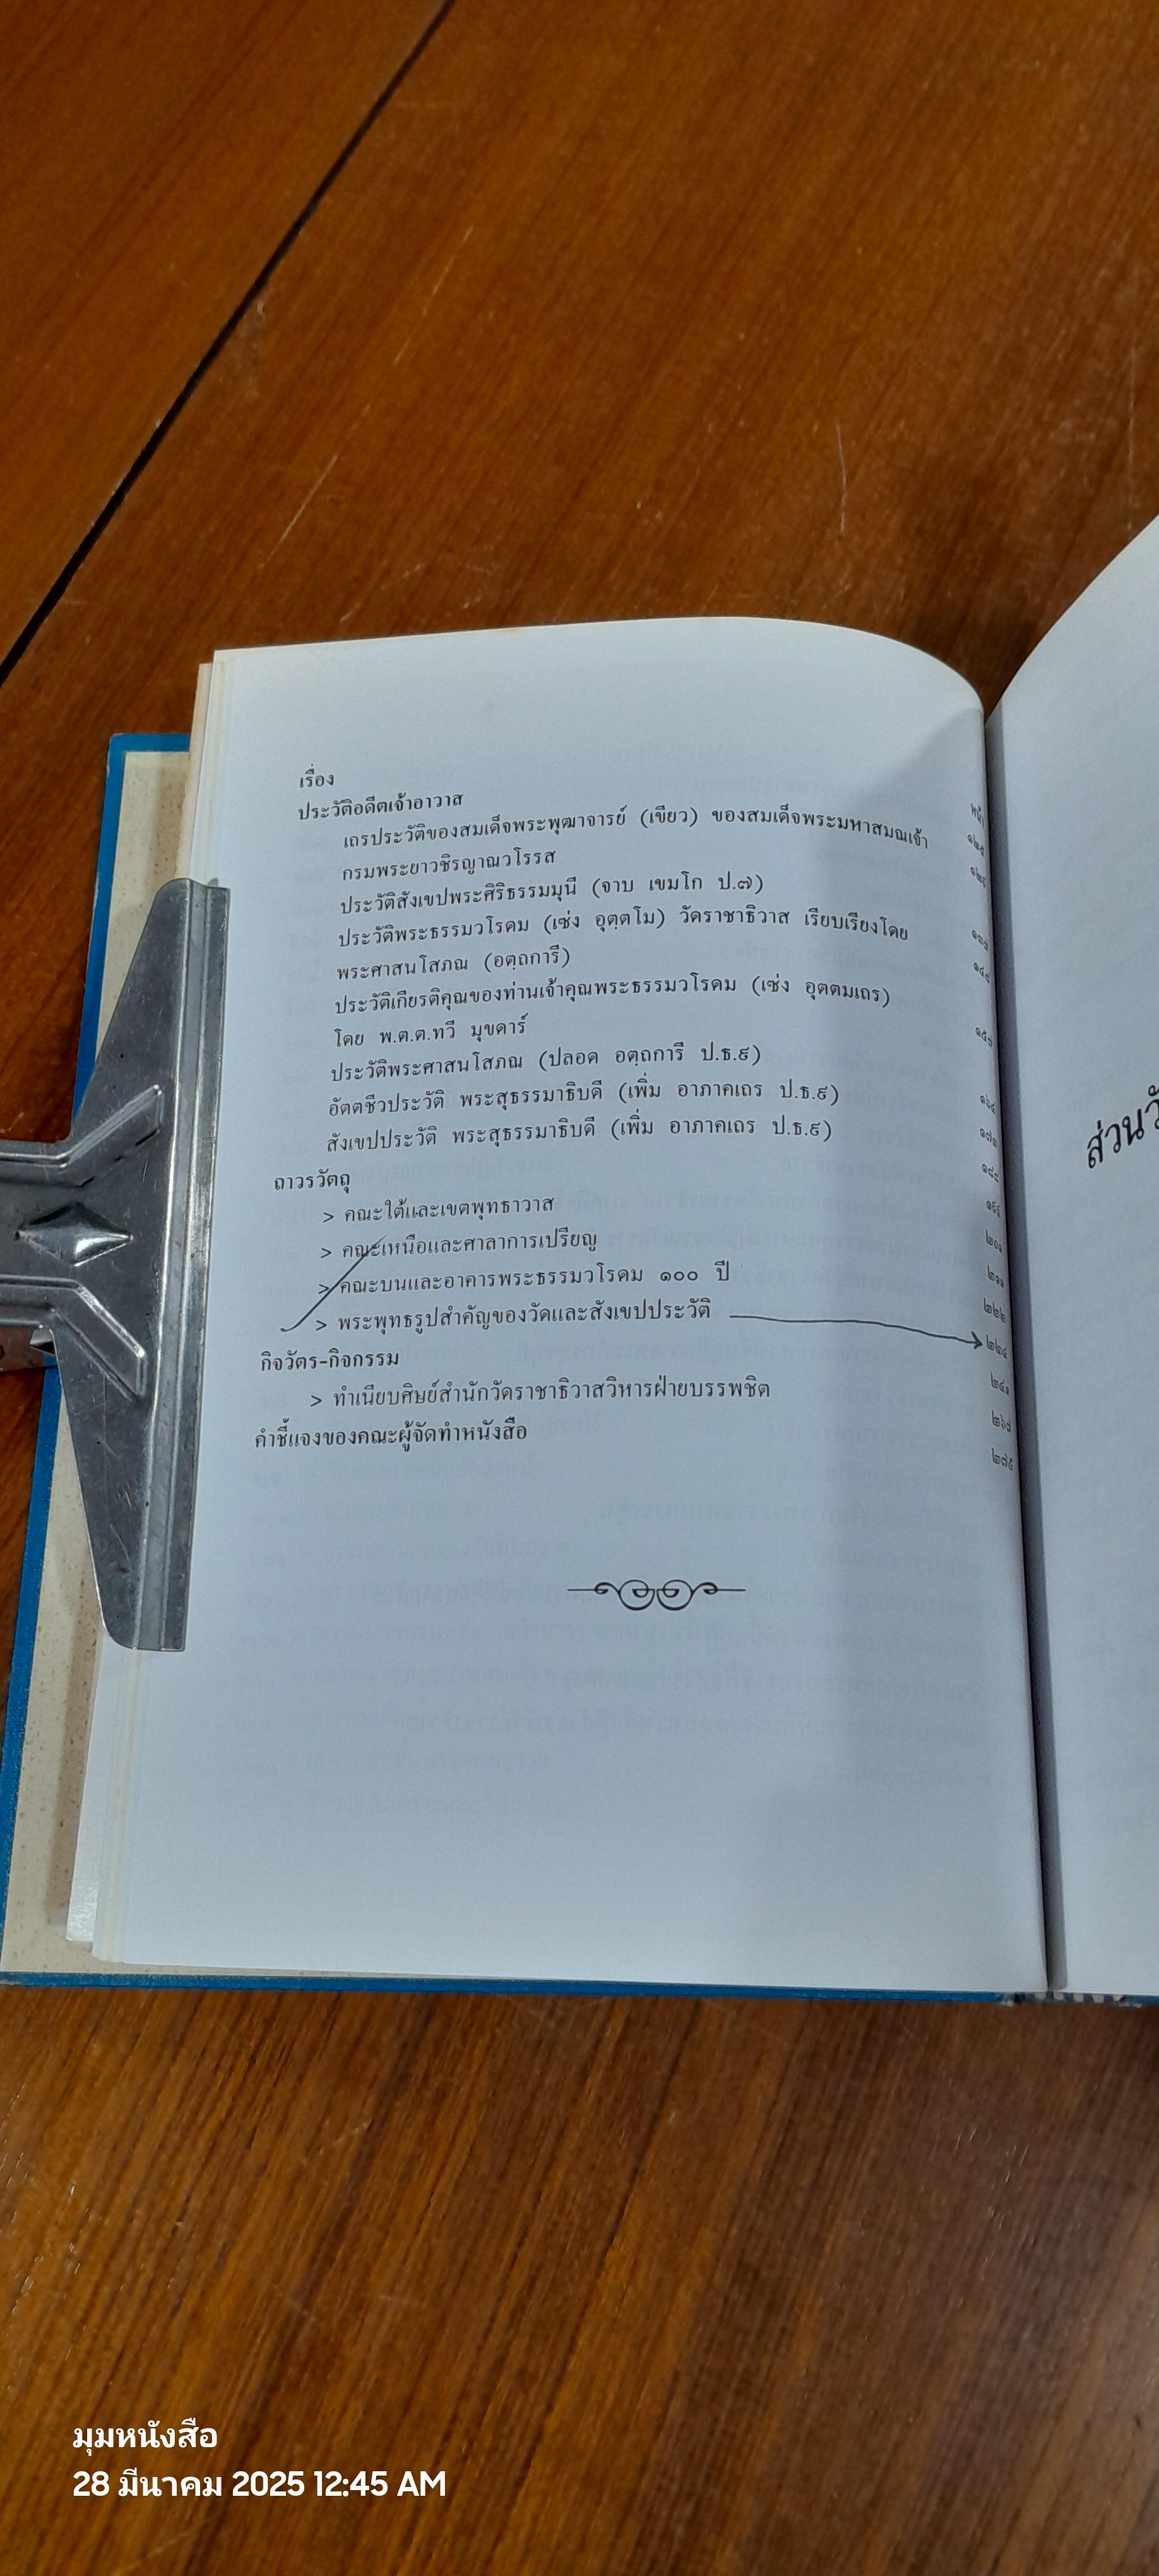 เรื่อง
หน้า
ประวัติอดีตเจ้าอาวาส
๑๒๕
เถรประวัติของสมเด็จพระพุฒาจารย์ (เขียว) ของสมเด็จพระมหาสมณเจ้า
กรมพระยาวชิรญาณวโรรส
ประวัติสังเขปพระศิริธรรมมุนี (จาบ เขมโก ป.๗)
ประวัติพระธรรมวโรดม (เซ่ง อุตฺตโม) วัดราชาธิวาส เรียบเรียงโดย
พระศาสนโสภณ (อตฺถการี)
ประวัติเกียรติคุณของท่านเจ้าคุณพระธรรมวโรดม (เซ่ง อุตตมเถร)
โดย พ.ต.ต.ทวี มุขดาร์
ประวัติพระศาสนโสภณ (ปลอด อตฺถการี ป.ธ.๙)
๑๖๔
อัตตชีวประวัติ พระสุธรรมาธิบดี (เพิ่ม อาภาคเถร ป.ธ.๙)
๑๗๓
สังเขปประวัติ พระสุธรรมาธิบดี (เพิ่ม อาภาคเถร ป.ธ.๙)
ถาวรวัตถุ
> คณะใต้และเขตพุทธาวาส
๒๐๑
> คณะเหนือและศาลาการเปรียญ
๒๑๑
> คณะบนและอาคารพระธรรมวโรดม ๑๐๐ ปี
๒๒๒
> พระพุทธรูปสำคัญของวัดและสังเขปประวัติ
๒๒๔
กิจวัตร-กิจกรรม
๒๔๑
> ทำเนียบศิษย์สำนักวัดราชาธิวาสวิหารฝ่ายบรรพชิต
๒๖๗
คำชี้แจงของคณะผู้จัดทำหนังสือ
๒๗๕
มุมหนังสือ
28 มีนาคม 2025 12:45 AM